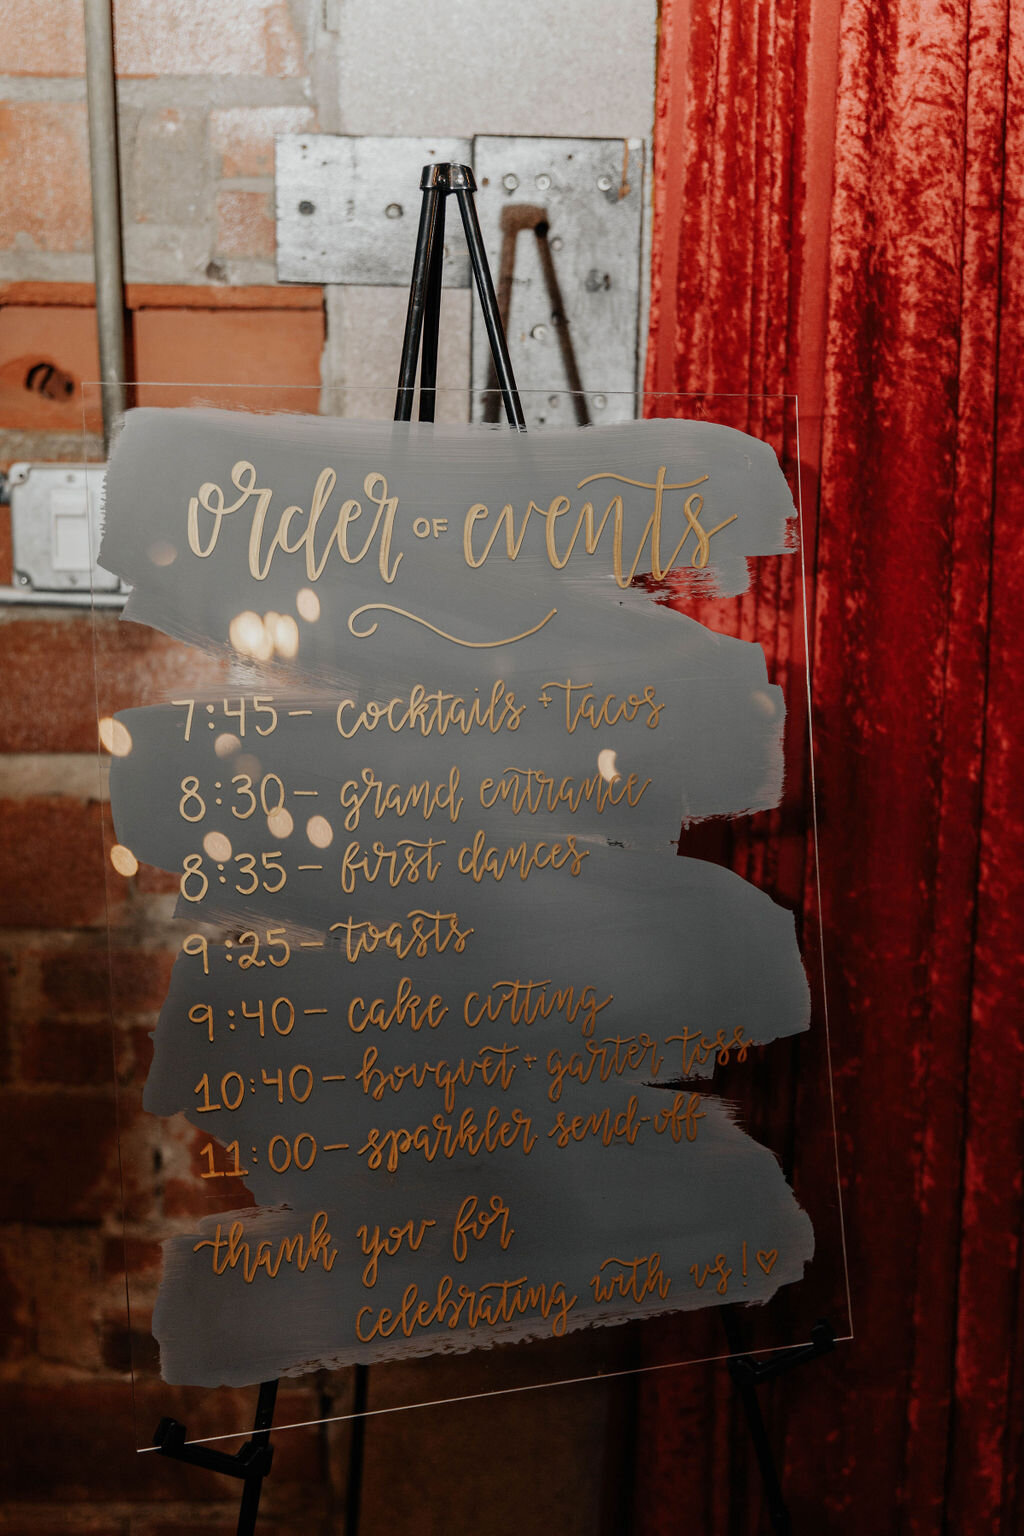 order OF events
7:45 - cocktails + tacos
8:30 - grand entrance
8:35 - first dances
9:25 - toasts
9:40 - cake cutting
10:40 - bouquet + garter toss
11:00 - sparkler send-off
thank you for
celebrating with us! ♡